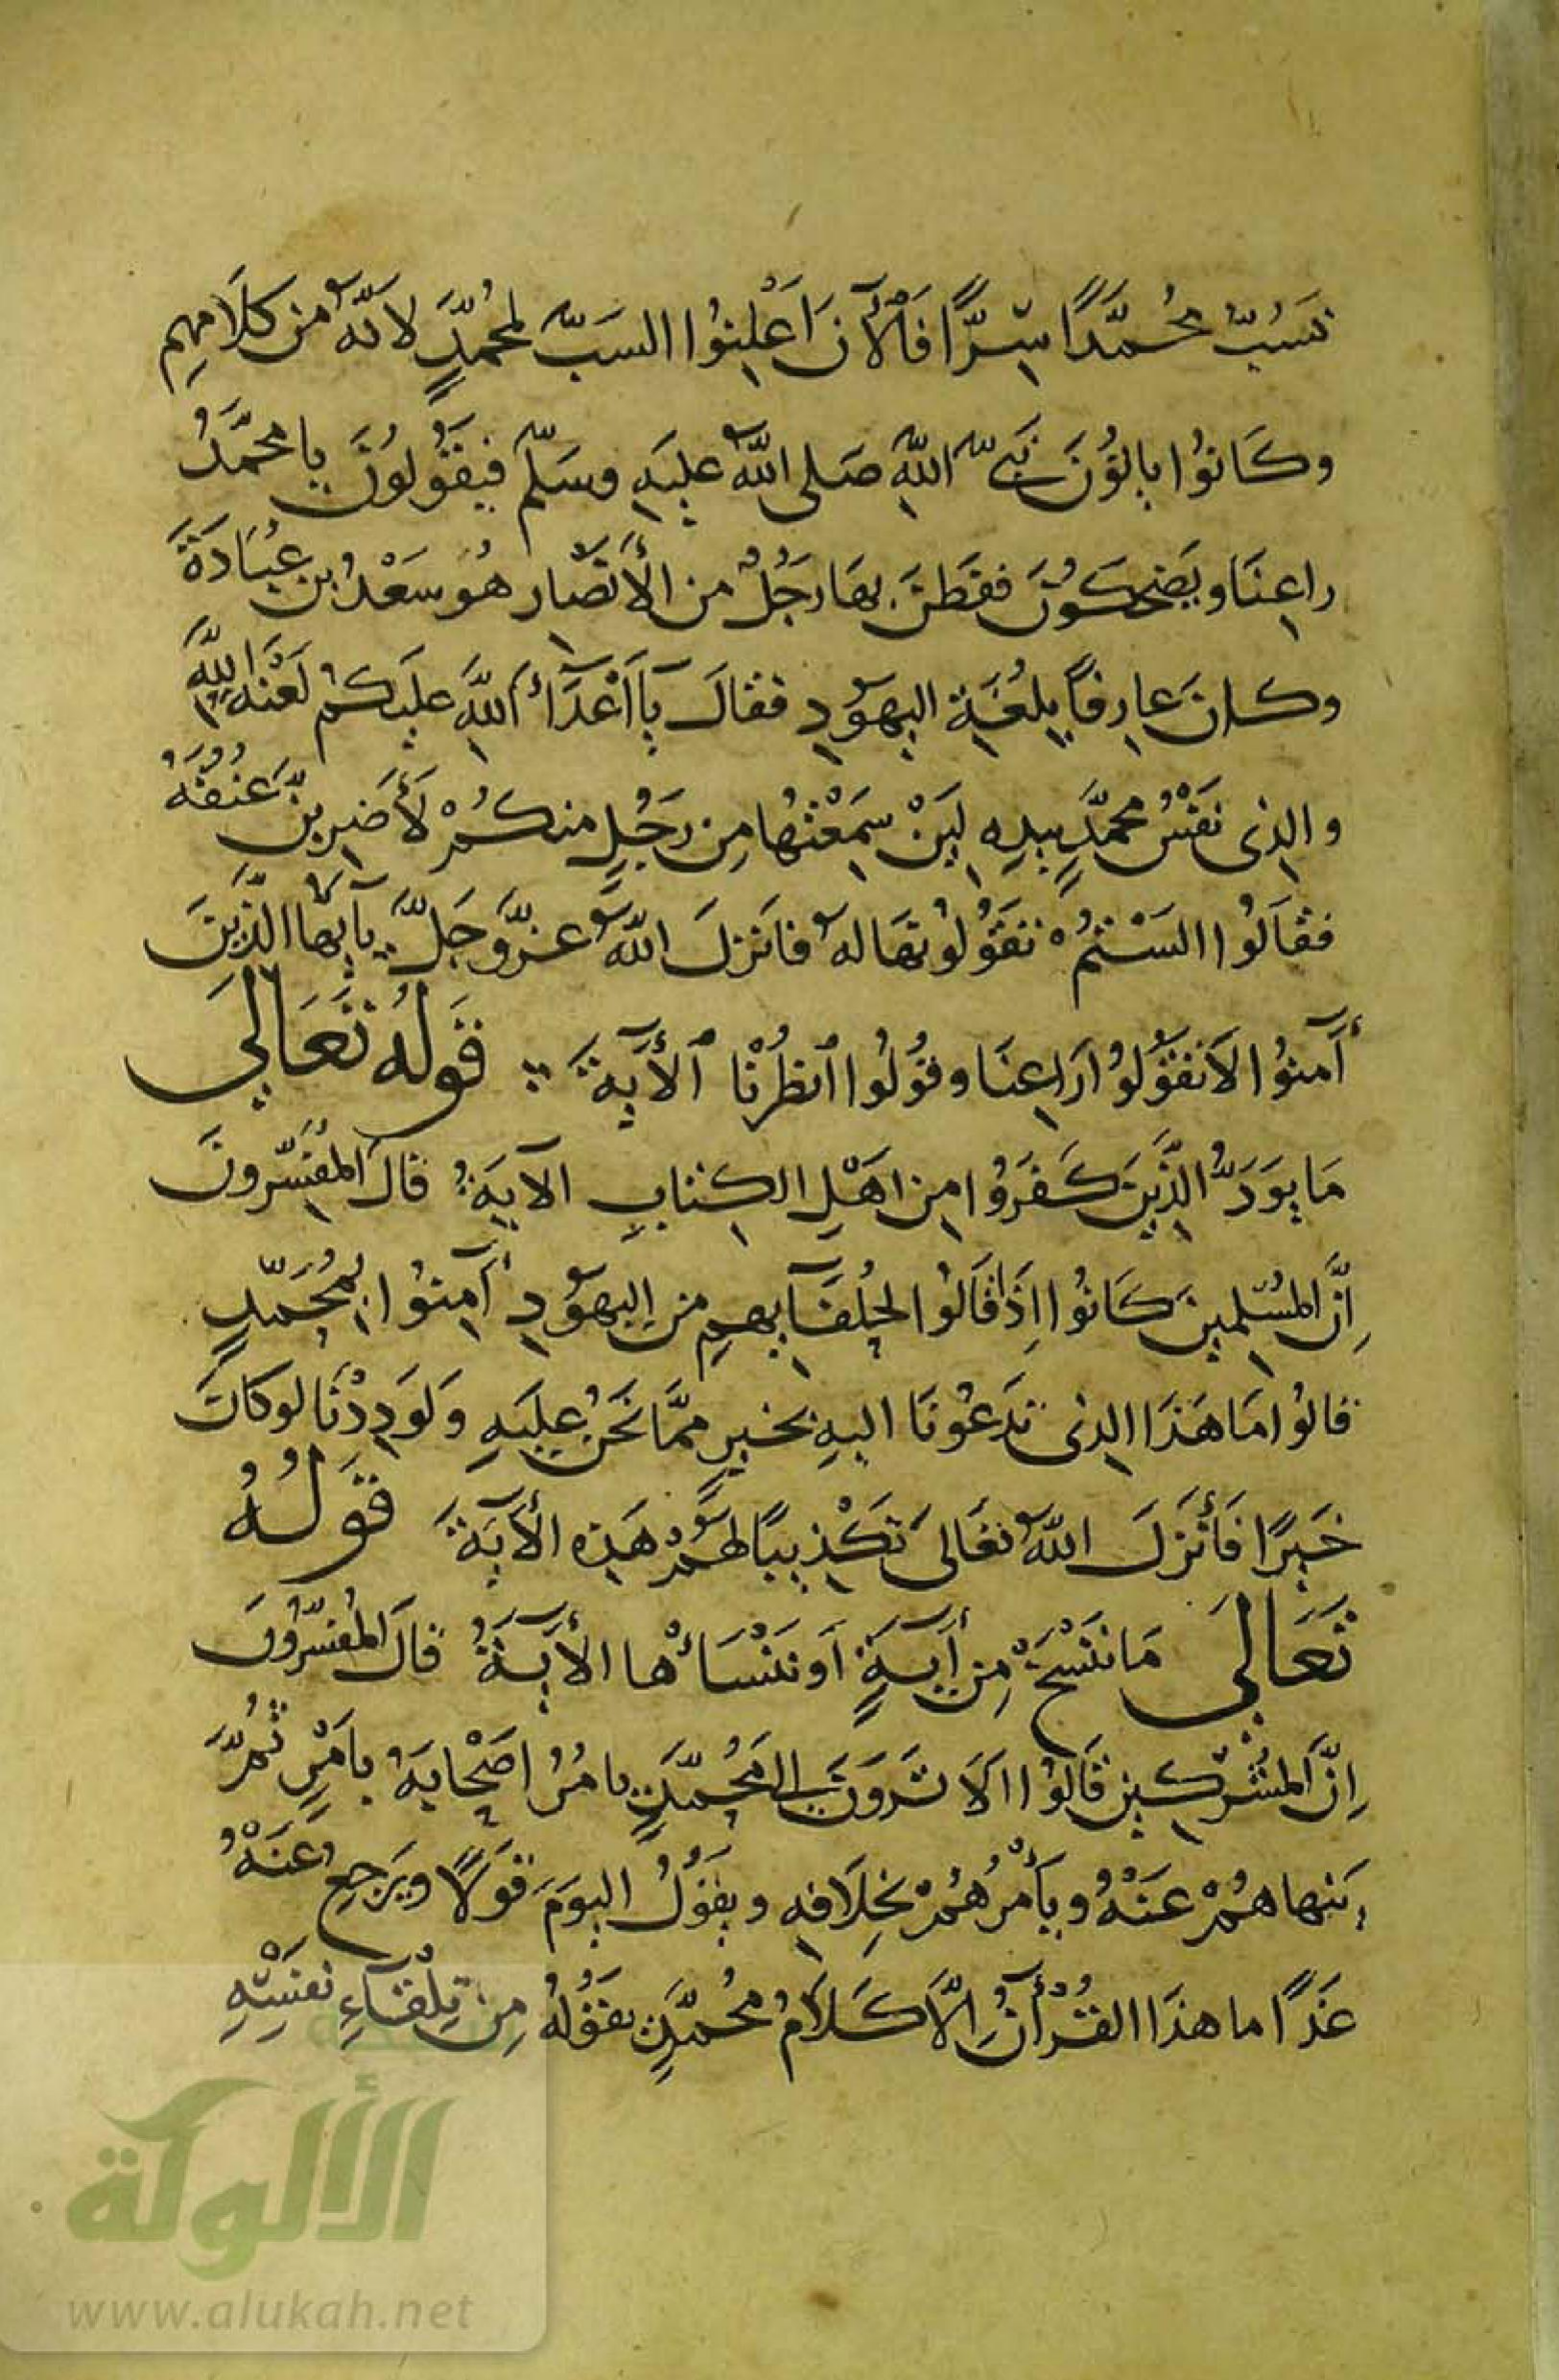 نَسُبُّ مُحَمَّدًا سِرًّا فَالْآنَ اَعْلِنُوا السَبَّ لِمُحَمَّدٍ لانَّهُ مِن كَلَامِهِم
وكَانُوا ياتُونَ نَبِيَّ اللّٰهِ صَلى اللّٰهُ عليَهِ وسَلّم فيَقُولُونَ يا محمَّدُ
راعِنَا ويَضحَكُونَ ففَطَنَ بهَا رَجُلٌ من الأَنصَار هُوَ سَعْدُ بن عُبَادَةَ
وكانَ عارِفاً بِلُغَةِ اليهَودِ فقالَ يٓا اَعْدَآءَ اللّٰهِ عليَكمْ لَعْنَه اللّٰهِ
والذِى نَفْسُ محمَّدٍ بيدِهِ لَيِنْ سَمِعْتُها مِن رَجُلٍ منكُمْ لَأَضرِبنَّ عُنُقهُ
فقالُوا السَتُمْ تقَوُلُوتهَا لهُ فانَزلَ اللّٰهُ عزَّوجَلَّ يآ ايهَا الذَّينَ
أٓمنوُا لاَ تقَوُلوُا رَاعِنَا وقُولُوا ٱنظُرْنا ٱلأٓيَةَ قَولُهُ تَعَالىَ
مَا يوَدُّ الذَّينَ كَفَرُوا مِن اهْلِ الكِتابِ الآيَةُ قالَ المُفسّرونَ
اِنَّ المُسْلِمينَ كَانُوا اِذَا قَالوُا لحُلفَآيهِم مِن اليهَودِ أٓمِنوُا بمُحَمّدٍ
قالوُا مَا هَذَا الذِى تَدعُونَا اليهِ بخيرٍ ممَّا نَحَنُ عليَهِ وَلَوَدِدْنَا لوكانَ
خَيرًا فَأَنزَلَ اللّٰهُ تعَالىَ تَكْذِيبًا لهَمُ هَذِهِ الأٓيَةَ قَولُهُ
تَعَالىَ مَا نَنْسَخَ مِن أيَةٍ اَو نَنْسَاْهَا الأٓيَةُ قالَ المُفسّرُونَ
اِنَّ المشُرِكينَ قَالوُا اَلَا تَروَنَ الى مُحَمّدٍ يامُرُ اصَحْابَهُ بامَرٍ ثُمَّ
يَنهاهُمْ عَنَهْ ويَأْمُرُهُمْ بخِلَافِهِ ويقَوُلُ اليوَمَ قَولًا ويَرجعُ عَنَهُ
غَدًا ما هذَا القُرْأٓنُ اِلَّا كَلاَمُ محُمَّدٍ يقَوُلهُ مِن تِلْقآءِ نفسِهِ
الألوكة
www.alukah.net